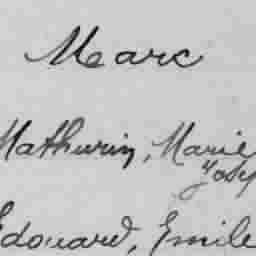 Marc
Mathurin, Marie
Josep
Edouard, Emile